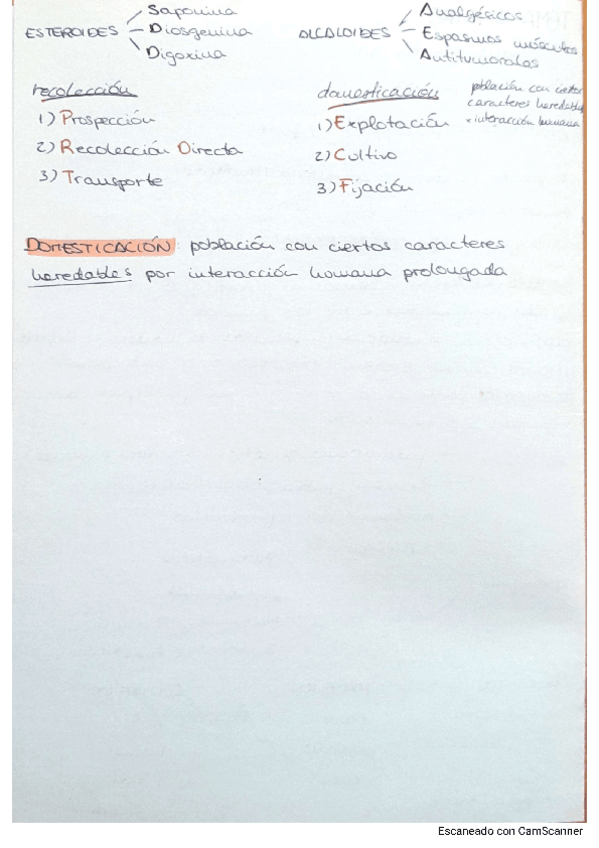 ESTEROIDES
Saponina
Diosgenina
Digoxina
ALCALOIDES
Analgésicos
Espasmos músculos
Antitumorales
recolección
1) Prospección
2) Recolección Directa
3) Transporte
domesticación
población con ciertos
caracteres heredables
x interacción humana
1) Explotación
2) Cultivo
3) Fijación
DOMESTICACIÓN: población con ciertos caracteres
heredables por interacción humana prolongada
Escaneado con CamScanner